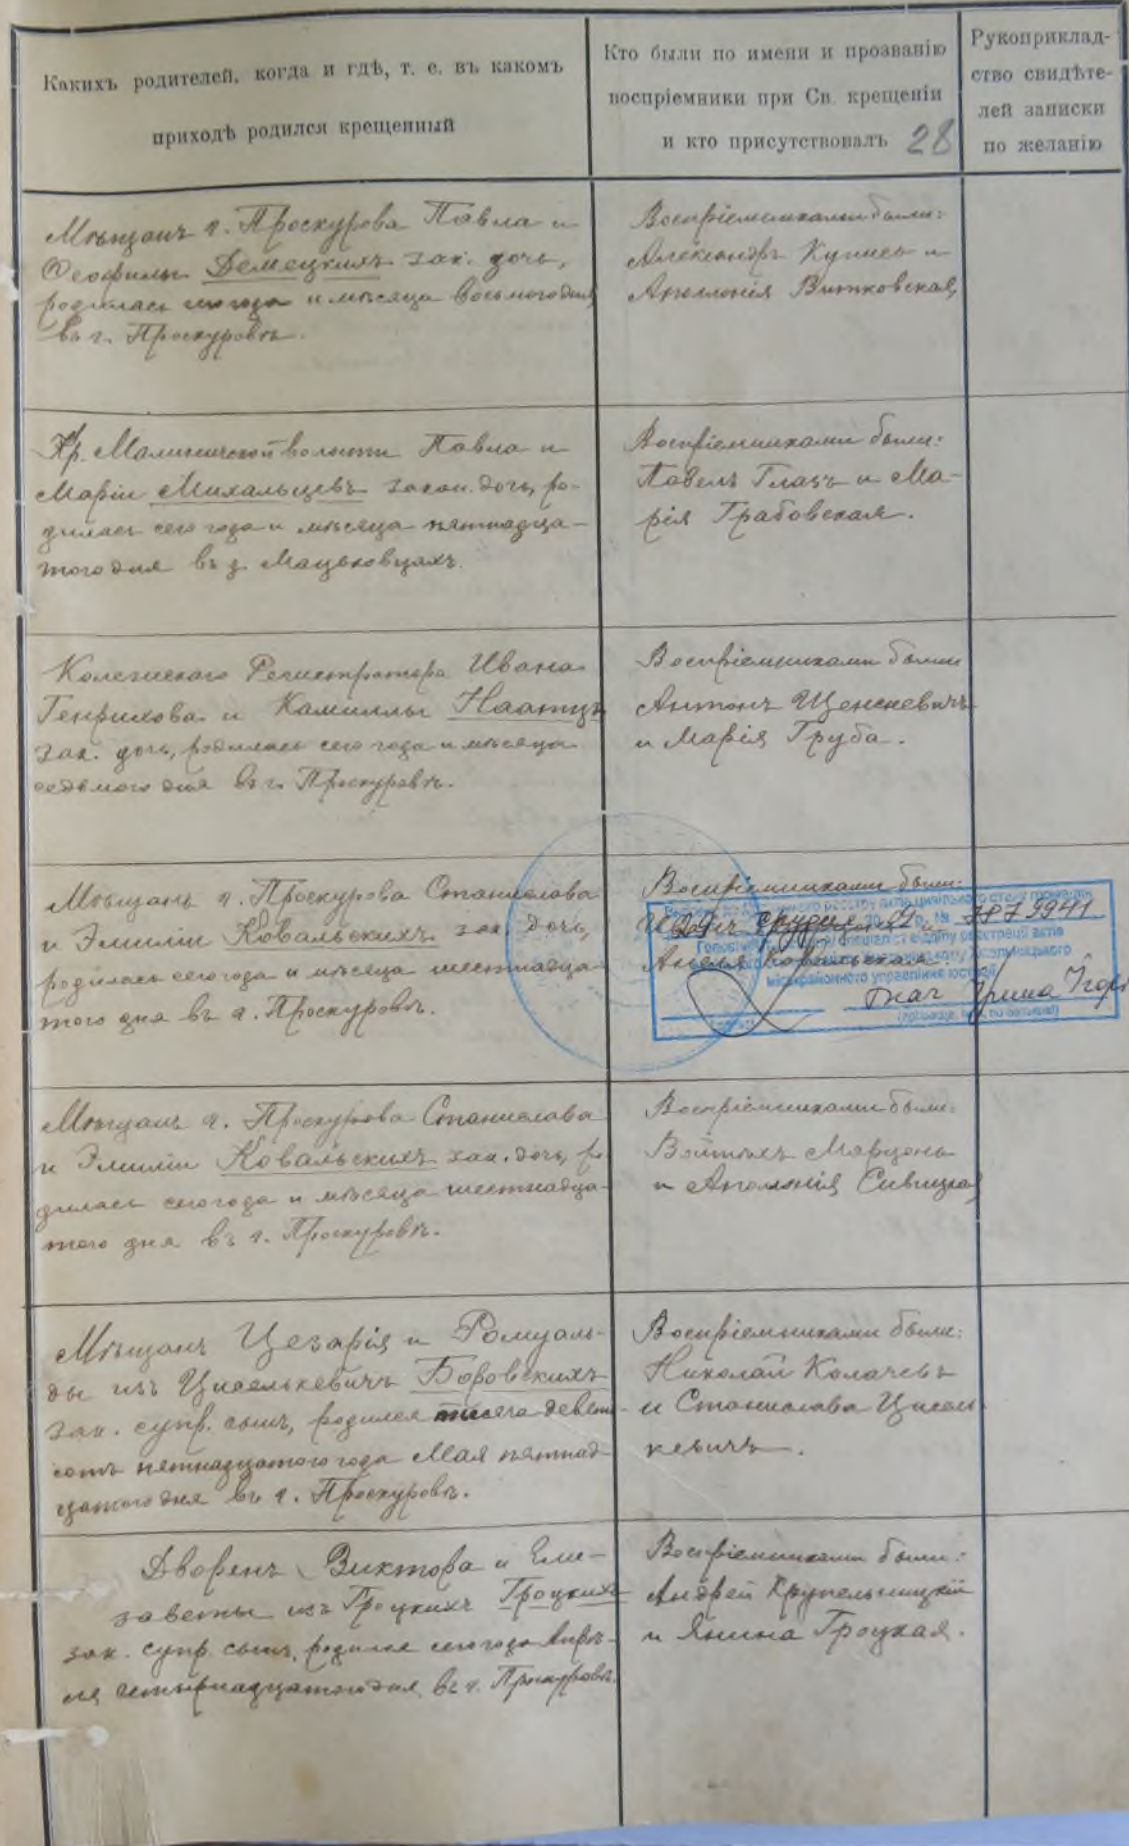 Каких​ъ родителей, когда и гдѣ, т. е. въ какомъ
приходѣ родился крещенный
Кто были по имени и прозванію
воспріемники при Св. крещеніи
и кто присутствовалъ 28
Рукоприклад-
ство свидѣте-
лей записки
по желанію
Мѣщанъ г. Проскурова Павла и
Ѳеофилы Демецкихъ зак. дочь,
родилась сего года и мѣсяца восьмого дня
въ г. Проскуровѣ.
Воспріемниками были:
Александръ и
Аполлонія Витковская,
Кр. Малиничской волости Павла и
Маріи Михальцевъ закон. дочь, ро-
дилась сего года и мѣсяца пятнадца-
того дня въ д. Мацьковцахъ.
Воспріемниками были:
Павелъ Глазъ и Ма-
рія Грабовская.
Колежскаго Регистратора Ивана
Генрихова и Камиллы Наатцъ
зак. дочь, родилась сего года и мѣсяца
седьмого дня въ г. Проскуровѣ.
Воспріемниками были
Антонъ Щенсневичъ
и Марія Груба.
Мѣщанъ г. Проскурова Станислава
и Эмиліи Ковальскихъ зак. дочь,
родилась сего года и мѣсяца шестнадца-
того дня въ г. Проскуровѣ.
Воспріемниками были:
29 грудня № 7873941
Анеля Ковальская.
міськрайонного управління юстиції
Ткач Ірина Ігорі
Мѣщанъ г. Проскурова Станислава
и Эмиліи Ковальскихъ зак. дочь, ро-
дилась сего года и мѣсяца шестнадца-
того дня въ г. Проскуровѣ.
Воспріемниками были:
Войтѣхъ Марцонь
и Аполонія Сивицкая
Мѣщанъ Цезарія и Ромуаль-
ды изъ Циселькевичъ Боровскихъ
зак. супр. сынъ, родился тысяча девять-
сотъ пятнадцатого года Мая пятнад-
цатого дня въ г. Проскуровѣ.
Воспріемниками были:
Николай Колачевъ
и Станислава Цисель-
кевичъ.
Дворянъ Виктора и Ели-
заветы изъ Троцкихъ Троцкихъ
зак. супр. сынъ, родился сего года Апрѣ-
ля четырнадцатого дня въ г. Проскуровѣ.
Воспріемниками были:
Андрей Крупельницкій
и Янина Троцкая.